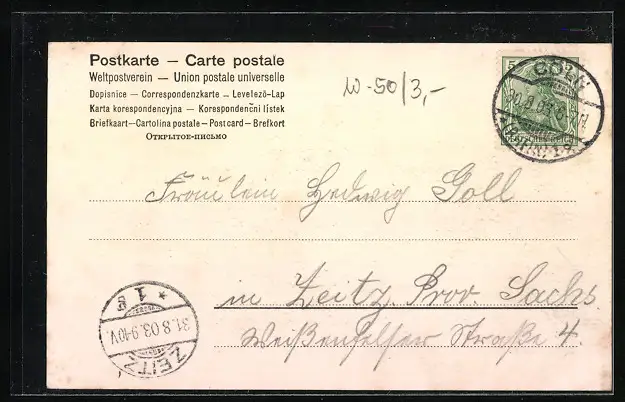 Postkarte — Carte postale
Weltpostverein — Union postale universelle
Dopisnice — Correspondenzkarte — Levelező-Lap
Karta korespondencyjna — Korespondenční lístek
Briefkaart—Cartolina postale—Postcard—Brefkort
Открытое-письмо
W-50/3,-
5
CÖLN
DEUTSCHES REICH
Fräulein Hedwig Goll
in Zeitz Prov. Sachs.
Weißenfelser Straße 4.
* 1 g
31.8.03.9-10V.
ZEITZ